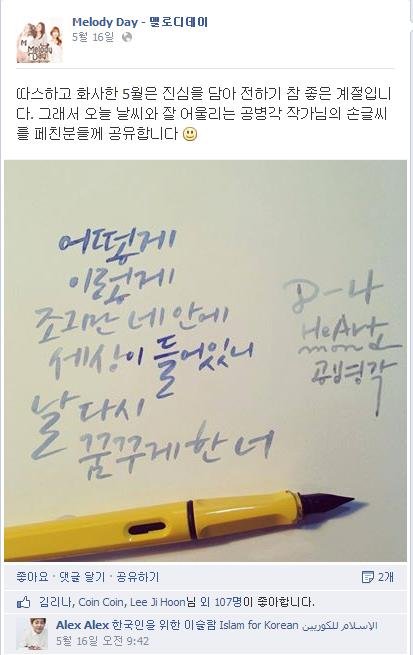 Melody Day - 멜로디데이
5월 16일
따스하고 화사한 5월은 진심을 담아 전하기 참 좋은 계절입니
다. 그래서 오늘 날씨와 잘 어울리는 공병각 작가님의 손글씨
를 페친분들께 공유합니다
어떻게
이렇게
조그만 네 안에
세상이 들어있니
날 다시
꿈꾸게 한 너
D-나
HeArt
mond
공병각
좋아요 · 댓글 달기 · 공유하기
2개
김리나, Coin Coin, Lee Ji Hoon님 외 107명이 좋아합니다.
Alex Alex 한국인을 위한 이슬람 Islam for Korean الإسلام للكوريين
5월 16일 오전 9:42